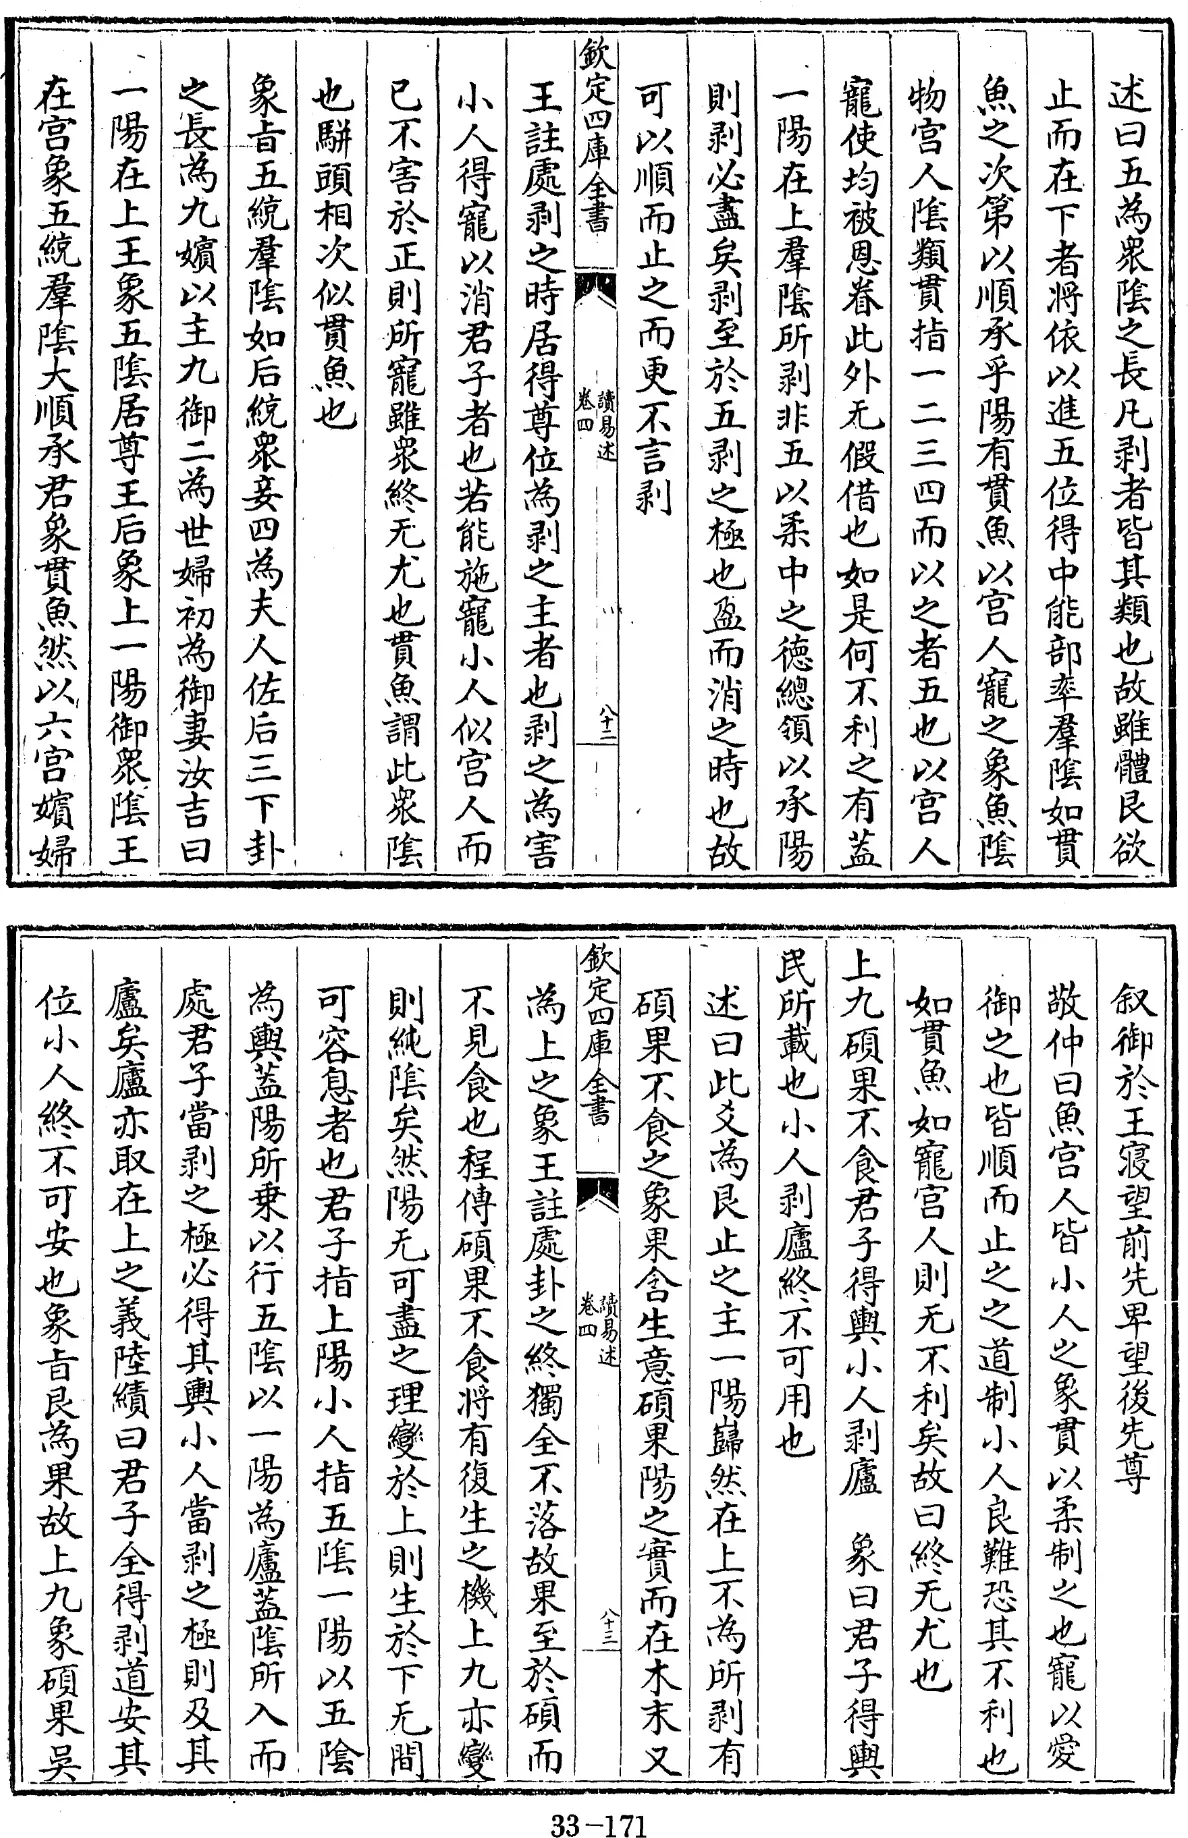 述曰五為衆陰之長凡剥者皆其類也故雖體艮欲
止而在下者將依以進五位得中能部率羣陰如貫
魚之次第以順承乎陽有貫魚以宫人寵之象魚隂
物宫人隂類貫指一二三四而以之者五也以宫人
寵使均被恩眷此外无假借也如是何不利之有蓋
一陽在上羣隂所剥非五以柔中之德總領以承陽
則剥必盡矣剥至於五剥之極也盈而消之時也故
可以順而止之而更不言剥
欽定四庫全書
讀易述
卷四
八十二
王註處剥之時居得尊位為剥之主者也剥之為害
小人得寵以消君子者也若能施寵小人似宫人而
已不害於正則所寵雖衆終无尤也貫魚謂此衆隂
也駢頭相次似貫魚也
象㫖五統羣隂如后統衆妾四為夫人佐后三下卦
之長為九嬪以主九御二為世婦初為御妻汝吉曰
一陽在上王象五隂居尊王后象上一陽御衆隂王
在宫象五統羣隂大順承君象貫魚然以六宫嬪婦
叙御於王寝望前先卑望後先尊
敬仲曰魚宫人皆小人之象貫以柔制之也寵以愛
御之也皆順而止之之道制小人良難恐其不利也
如貫魚如寵宫人則无不利矣故曰終无尤也
上九碩果不食君子得輿小人剥廬　象曰君子得輿
民所載也小人剥廬終不可用也
述曰此爻為艮止之主一陽巋然在上不為所剥有
碩果不食之象果含生意碩果陽之實而在木末又
欽定四庫全書
讀易述
卷四
八十三
為上之象王註處卦之終獨全不落故果至於碩而
不見食也程傳碩果不食將有復生之機上九亦變
則純隂矣然陽无可盡之理變於上則生於下无間
可容息者也君子指上陽小人指五隂一陽以五陰
為輿蓋陽所乗以行五隂以一陽為廬蓋隂所入而
處君子當剥之極必得其輿小人當剥之極則及其
廬矣廬亦取在上之義陸績曰君子全得剥道安其
位小人終不可安也象㫖艮為果故上九象碩果吴
33-171